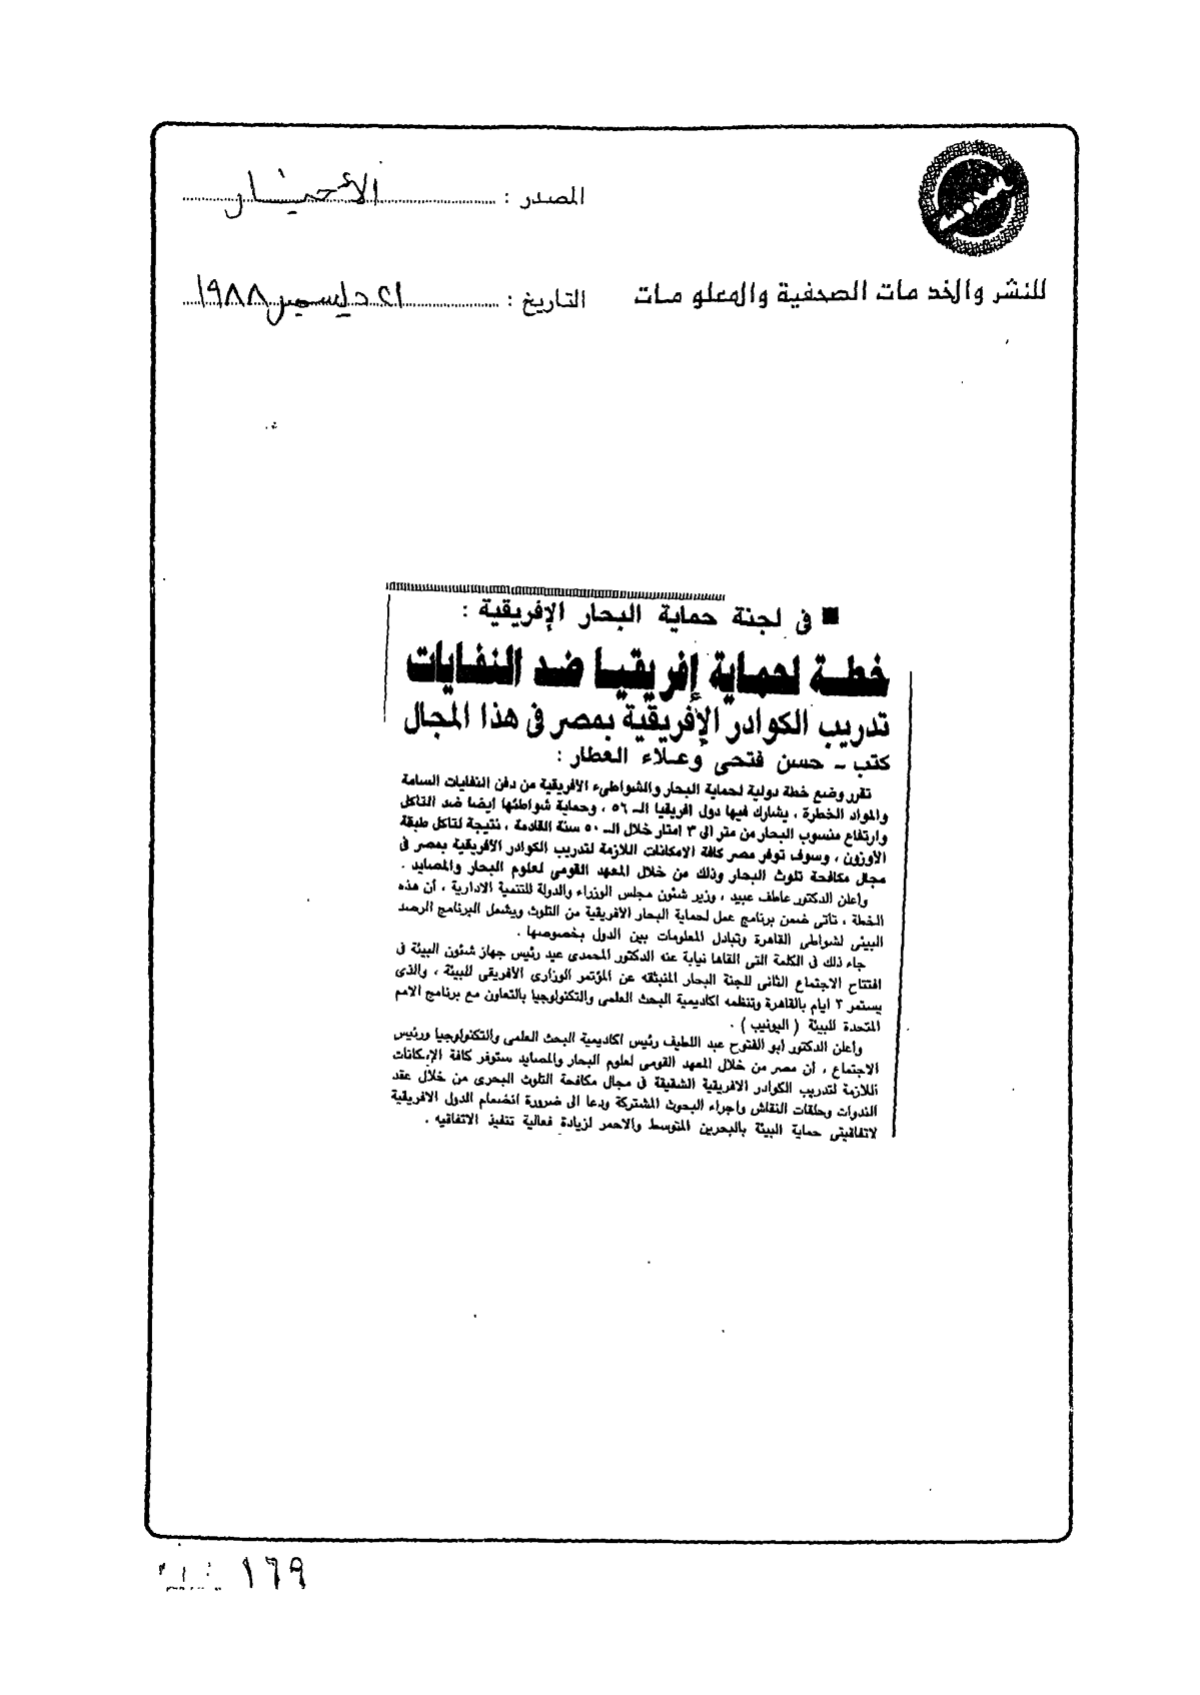 المصدر : الأخبار
للنشر والخدمات الصحفية والمعلومات
التاريخ : ٢١ ديسمبر ١٩٨٨
■ فى لجنة حماية البحار الإفريقية :
خطة لحماية إفريقيا ضد النفايات
تدريب الكوادر الإفريقية بمصر فى هذا المجال
كتب - حسن فتحى وعلاء العطار :
تقرر وضع خطة دولية لحماية البحار والشواطىء الأفريقية من دفن النفايات السامة
والمواد الخطرة ، يشارك فيها دول افريقيا الـ ٥٦ ، وحماية شواطئها ايضا ضد التآكل
وارتفاع منسوب البحار من متر الى ٣ امتار خلال الـ ٥٠ سنة القادمة ، نتيجة لتاكل طبقة
الأوزون ، وسوف توفر مصر كافة الامكانات اللازمة لتدريب الكوادر الأفريقية بمصر فى
مجال مكافحة تلوث البحار وذلك من خلال المعهد القومى لعلوم البحار والمصايد .
وأعلن الدكتور عاطف عبيد ، وزير شئون مجلس الوزراء والدولة للتنمية الادارية ، أن هذه
الخطة ، تأتى ضمن برنامج عمل لحماية البحار الافريقية من التلوث ويشمل البرنامج الرصد
البيئى لشواطى القاهرة وتبادل المعلومات بين الدول بخصوصها .
جاء ذلك فى الكلمة التى القاها نيابة عنه الدكتور المحمدى عيد رئيس جهاز شئون البيئة فى
افتتاح الاجتماع الثانى للجنة البحار المنبثقه عن المؤتمر الوزارى الأفريقى للبيئة ، والذى
يستمر ٣ ايام بالقاهرة وتنظمه اكاديمية البحث العلمى والتكنولوجيا بالتعاون مع برنامج الامم
المتحدة للبيئة ( اليونيب ) .
وأعلن الدكتور ابو الفتوح عبد اللطيف رئيس اكاديمية البحث العلمى والتكنولوجيا ورئيس
الاجتماع ، أن مصر من خلال المعهد القومى لعلوم البحار والمصايد ستوفر كافة الإمكانات
اللازمة لتدريب الكوادر الافريقية الشقيقة فى مجال مكافحة التلوث البحرى من خلال عقد
الندوات وحلقات النقاش واجراء البحوث المشتركة ودعا الى ضرورة انضمام الدول الافريقية
لاتفاقيتى حماية البيئة بالبحرين المتوسط والاحمر لزيادة فعالية تنفيذ الاتفاقيه .
١٦٩